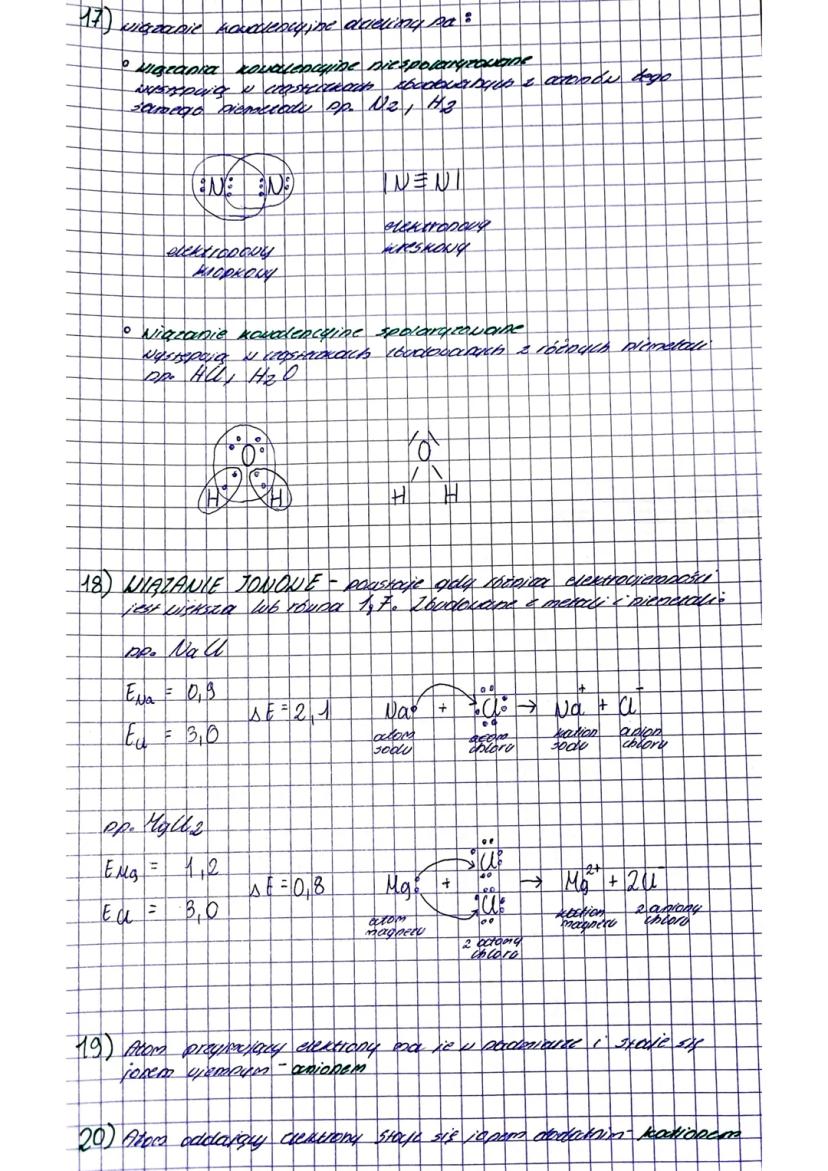 17) Wiązanie kowalencyjne dzielimy na:
• Wiązania kowalencyjne niespolaryzowane
występują w cząsteczkach zbudowanych z atomów tego
samego niemetalu np. N2, H2
:N⋮⋮N:
|N≡N|
elektronowy
kropkowy
elektronowy
kreskowy
• Wiązanie kowalencyjne spolaryzowane
występują w cząsteczkach zbudowanych z różnych niemetali
np. HCl, H2O
O
H H
O
H H
18) WIĄZANIE JONOWE - powstaje gdy różnica elektroujemności
jest większa lub równa 1,7. Zbudowane z metali i niemetali:
np. NaCl
ENa = 0,9
ECl = 3,0
ΔE = 2,1
Na + Cl → Na+ + Cl-
atom
sodu
atom
chloru
kation
sodu
anion
chloru
np. MgCl2
EMg = 1,2
ECl = 3,0
ΔE = 0,8
Mg: + Cl Cl → Mg2+ + 2Cl-
atom
magnezu
2 atomy
chloru
kation
magnezu
2 aniony
chloru
19) Atom przyjmujący elektrony ma je w nadmiarze i staje się
jonem ujemnym - anionem
20) Atom oddający elektrony staje się jonem dodatnim - kationem